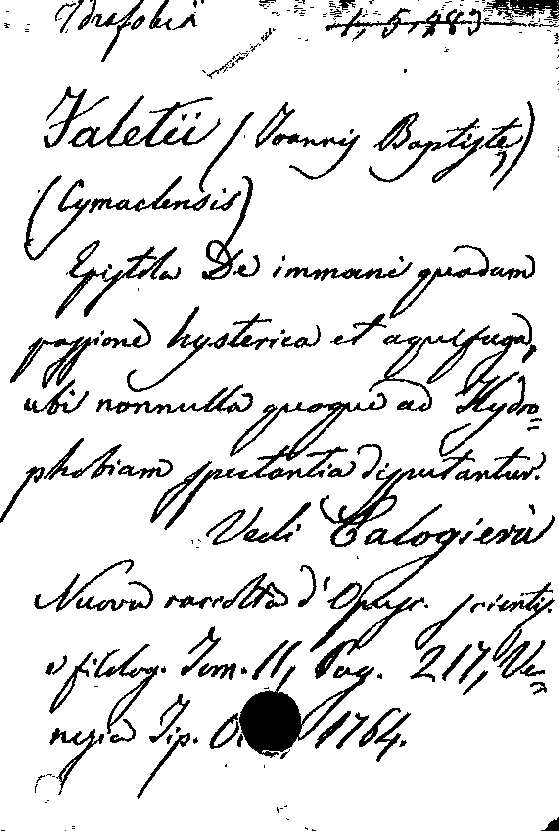 Idrofobia
Valetii (Joannis Baptiste,)
(Cymaclensis)
Epistola De immani quadam
passione hysterica et aquifuga,
ubi nonnulla quoque ad Hydro=
phobiam spectantia disputantur.
Vedi Calogierà
Nuova raccolta d'Opusc. scientif.
e filolog. Tom. 11, Pag. 217, Ve=
nezia Tip. 1764.